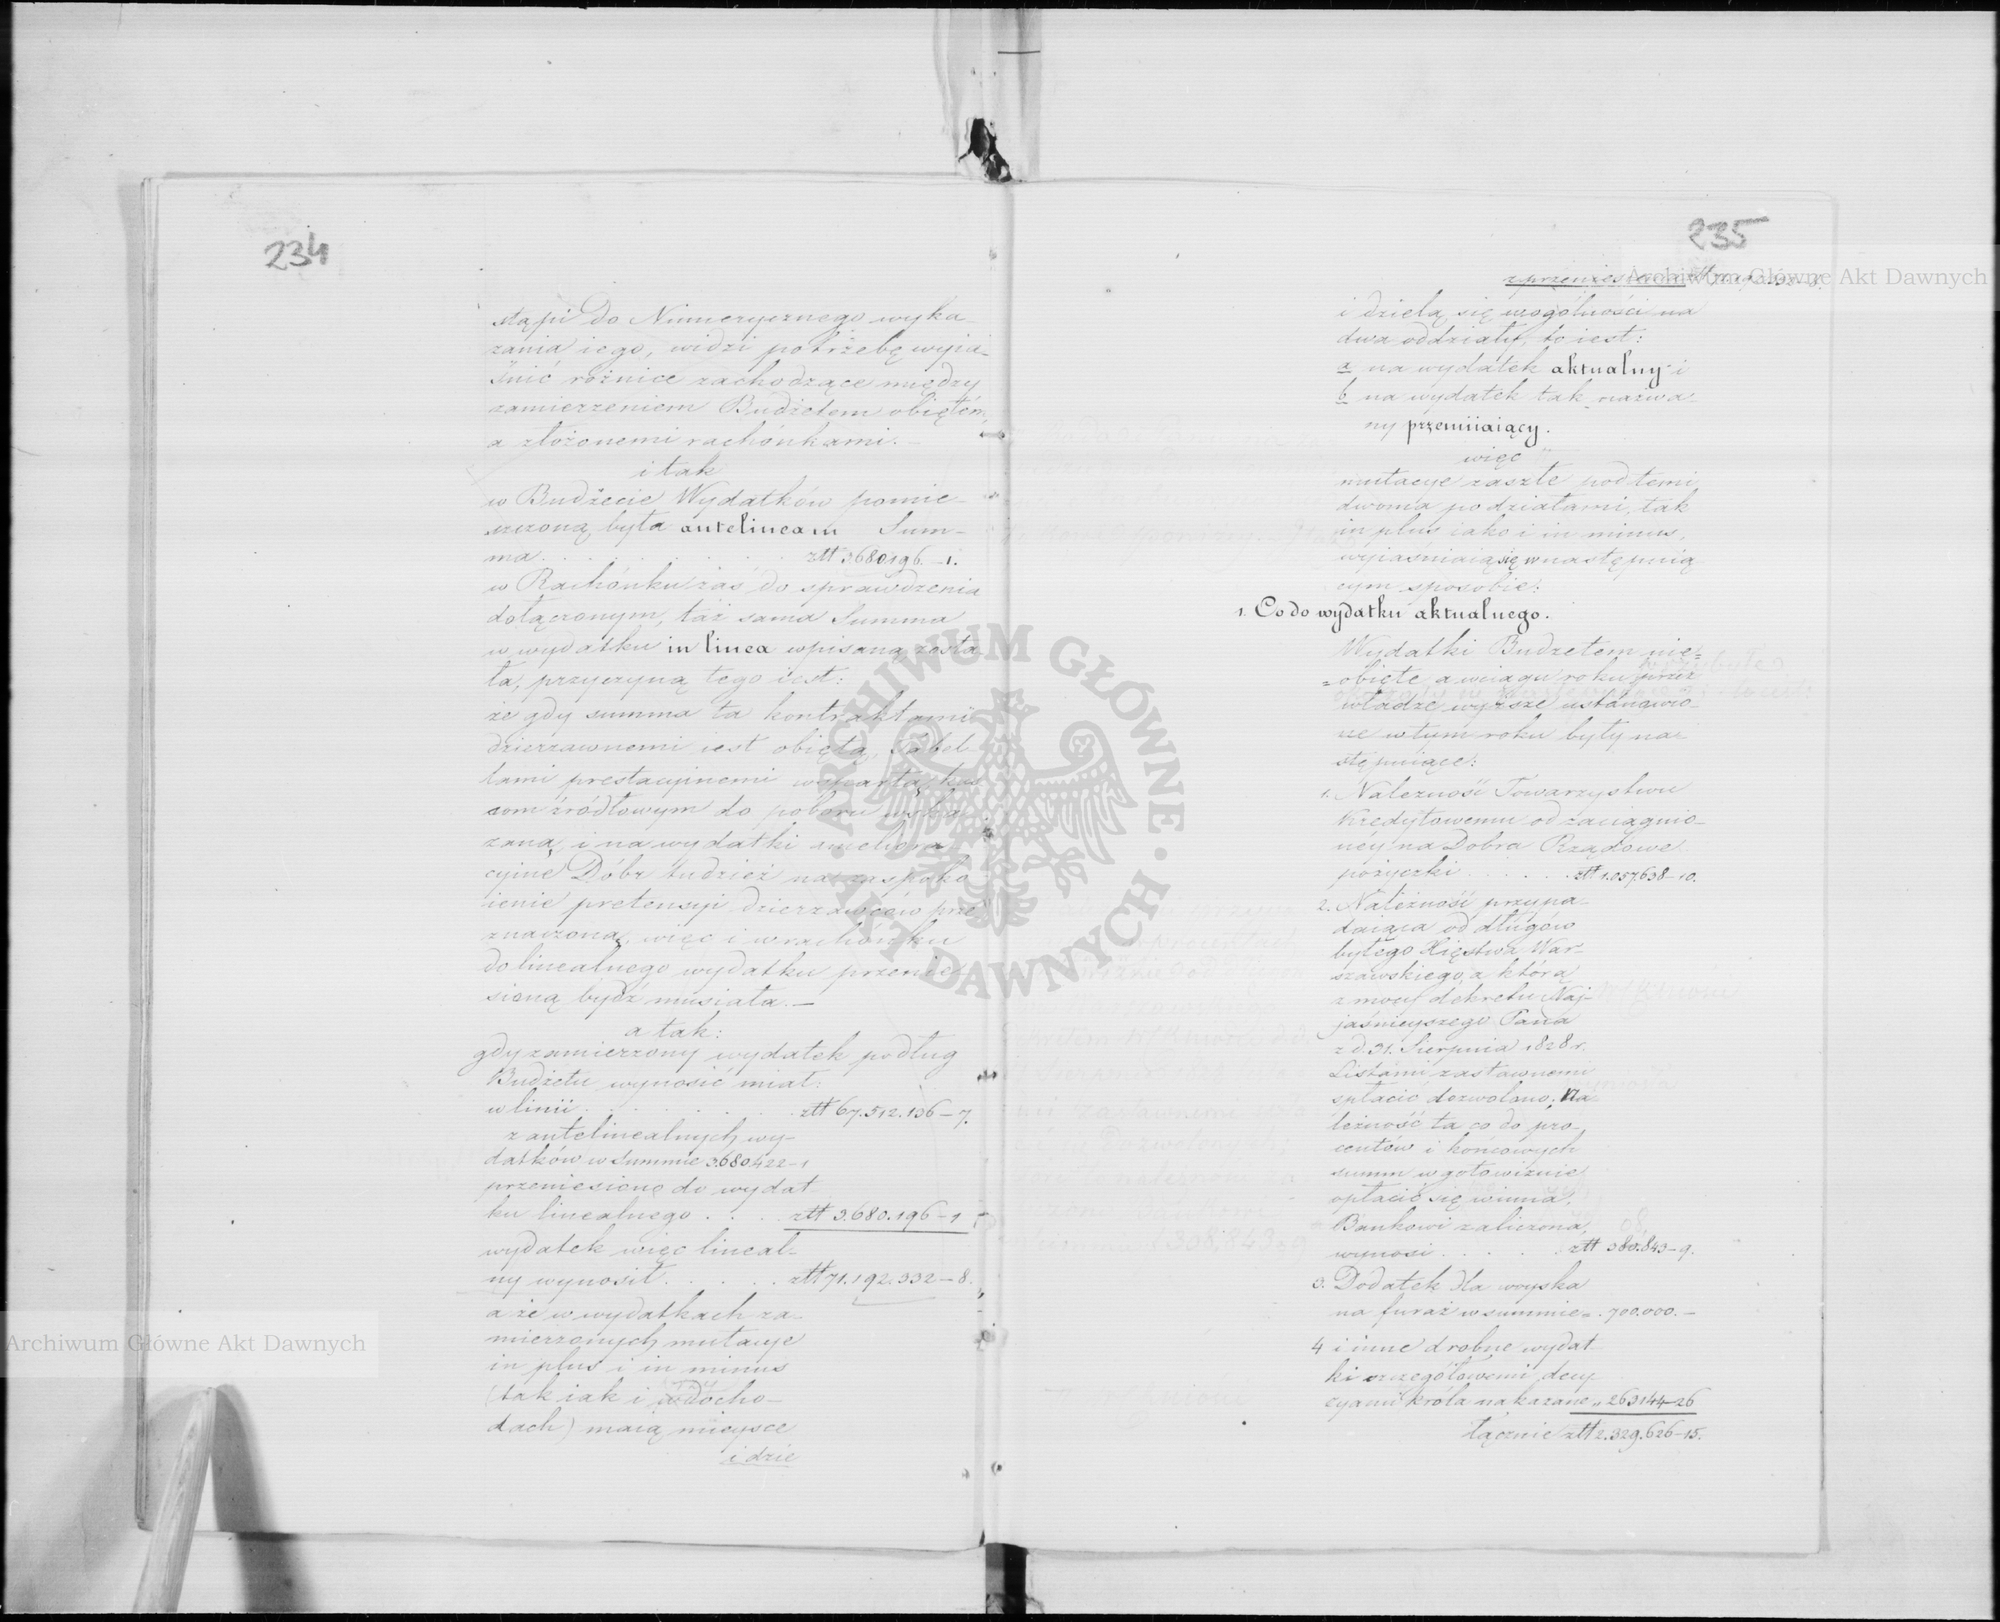 234
stąpi do Numerycznego wyka-
zania iego, widzi potrzebę wyia-
śnić róznice zachodzące między
zamierzeniem Budżetem obiętém,
a złożonemi rachónkami.—
i tak
w Budżecie Wydatków pomie-
szczoną była antelineam Sum-
ma . . . . . . . . złtt 3.680.196.—1.
w Rachónku zaś do sprawdzenia
dołączonym, taż sama Summa
w wydatku in linea wpisaną zosta-
ła, przyczyną tego iest:
że gdy summa ta kontraktami
dzierzawnemi iest obiętą, Tabel-
lami prestacyinemi wspartą, kas-
som źródłowym do poboru wska-
zaną, i na wydatki meliora-
cyine Dóbr tudzież na zaspoko-
ienie pretensyi dzierzawców prze-
znaczoną, więc i w rachónku
do linealnego wydatku przenie-
sioną bydź musiała.—
a tak:
gdy zamierzony wydatek podług
Budżetu wynosić miał:
w linii . . . . . . złtt 67.512.136—7.
z antelinealnych wy-
datków w Summie 3.680.422—1
przeniesiono do wydat-
ku linealnego . . . złtt 3.680.196—1
wydatek więc lineal-
ny wynosił . . . . . złtt 71.192.332—8.
a że w wydatkach za-
mierzonych mutacye
in plus i in minus
(tak iak i w docho-
dach) maią mieysce
i dzie
235
z przeniesienia
i dzielą się wogólności na
dwa oddziały, to iest:
a na wydatek aktualny i
b na wydatek tak nazwa-
ny przemiiaiący.
więc
mutacye zaszłe pod temi
dwoma podziałami, tak
in plus iako i in minus,
wyiaśniaią się w następuią-
cym sposobie:
1. Co do wydatku aktualnego.
Wydatki Budżetem nie-
=obięte a wciągu roku przez
władze wyższe ustanowio-
ne w tym roku były na-
stępuiące:
1. Należność Towarzystwu
Kredytowemu od zaciągnio-
néy na Dobra Rządowe
pożyczki . . . . . . złtt 1.057.638—10.
2. Należność przypa-
daiąca od długów
byłego Xięstwa War-
szawskiego, a którą
z mocy dekretu Naj-
jaśnieyszego Pana
z d. 31. Sierpnia 1828 r.
Listami zastawnemi
spłacić dozwolono; Na-
leżność ta co do pro-
centów i końcowych
summ w gotowiznie
opłacić się winna,
Bankowi zaliczona,
wynosi . . . . . złtt 308.843—9.
3. Dodatek dla woyska
na furaż w summie „ 700.000.—
4 i inne drobne wydat-
ki szczegółowemi decy-
zyami króla nakazane „ 263144—26
łącznie złtt 2.329.626—15.
Archiwum Główne Akt Dawnych
Archiwum Główne Akt Dawnych
ARCHIWUM GŁÓWNE · AKT DAWNYCH ·